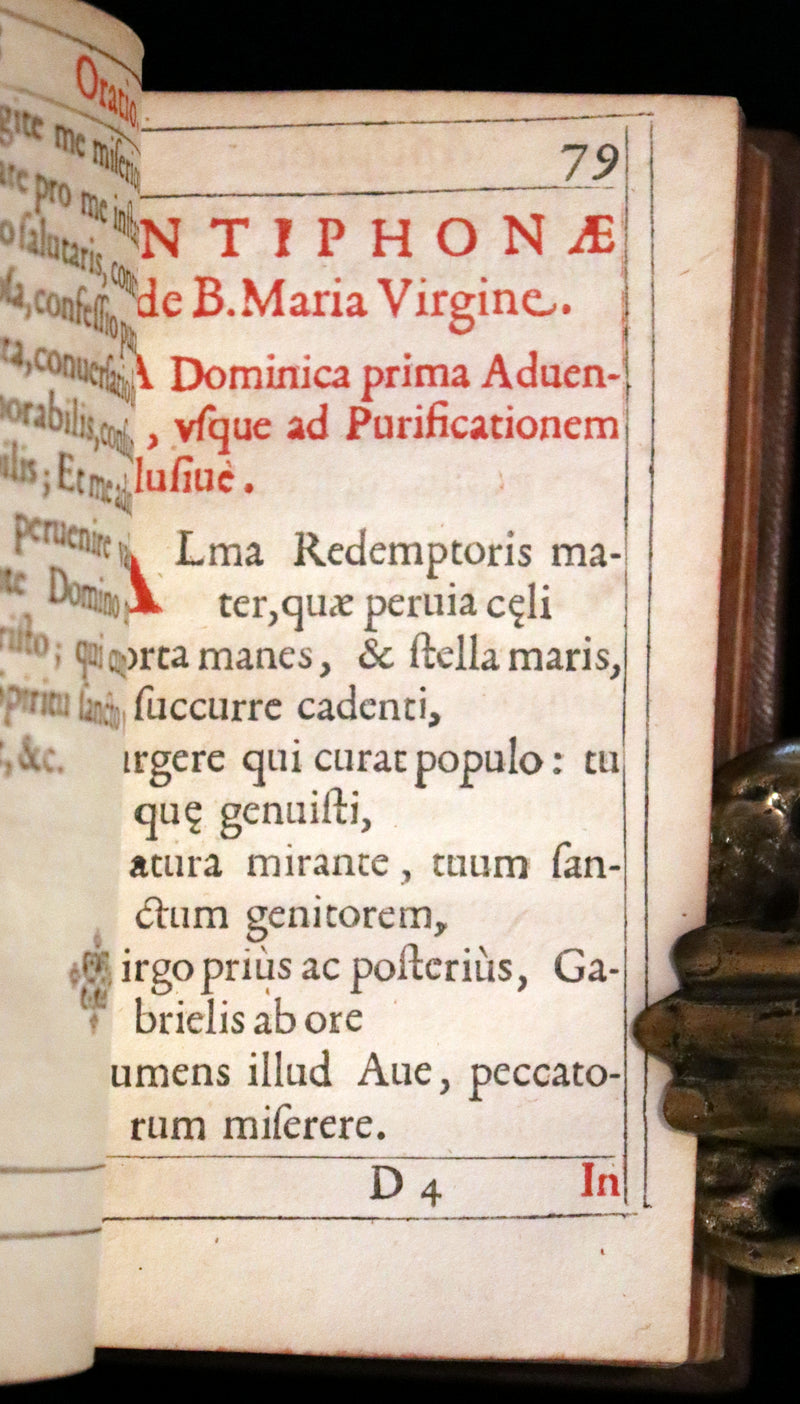 Oratio.
gite me miserico
pro me
salutaris,
confessio
Et me
peruenire
Domino
qui
&c.
79
NTIPHONÆ
de B. Maria Virgine.
A Dominica prima Aduen-
, vſque ad Purificationem
luſiuè.
ALma Redemptoris ma-
ter, quæ peruia cęli
orta manes, & ſtella maris,
ſuccurre cadenti,
urgere qui curat populo: tu
quę genuiſti,
atura mirante, tuum ſan-
ctum genitorem,
irgo priùs ac poſteriùs, Ga-
brielis ab ore
umens illud Aue, peccato-
rum miſerere.
D 4 In